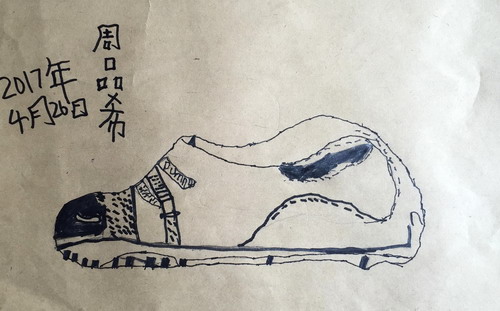 周品希
2017年
4月26日